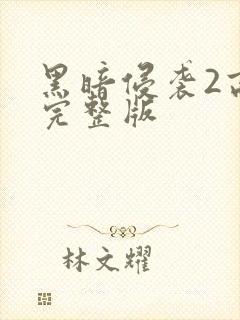 黑暗侵袭2高
完整版
林文耀